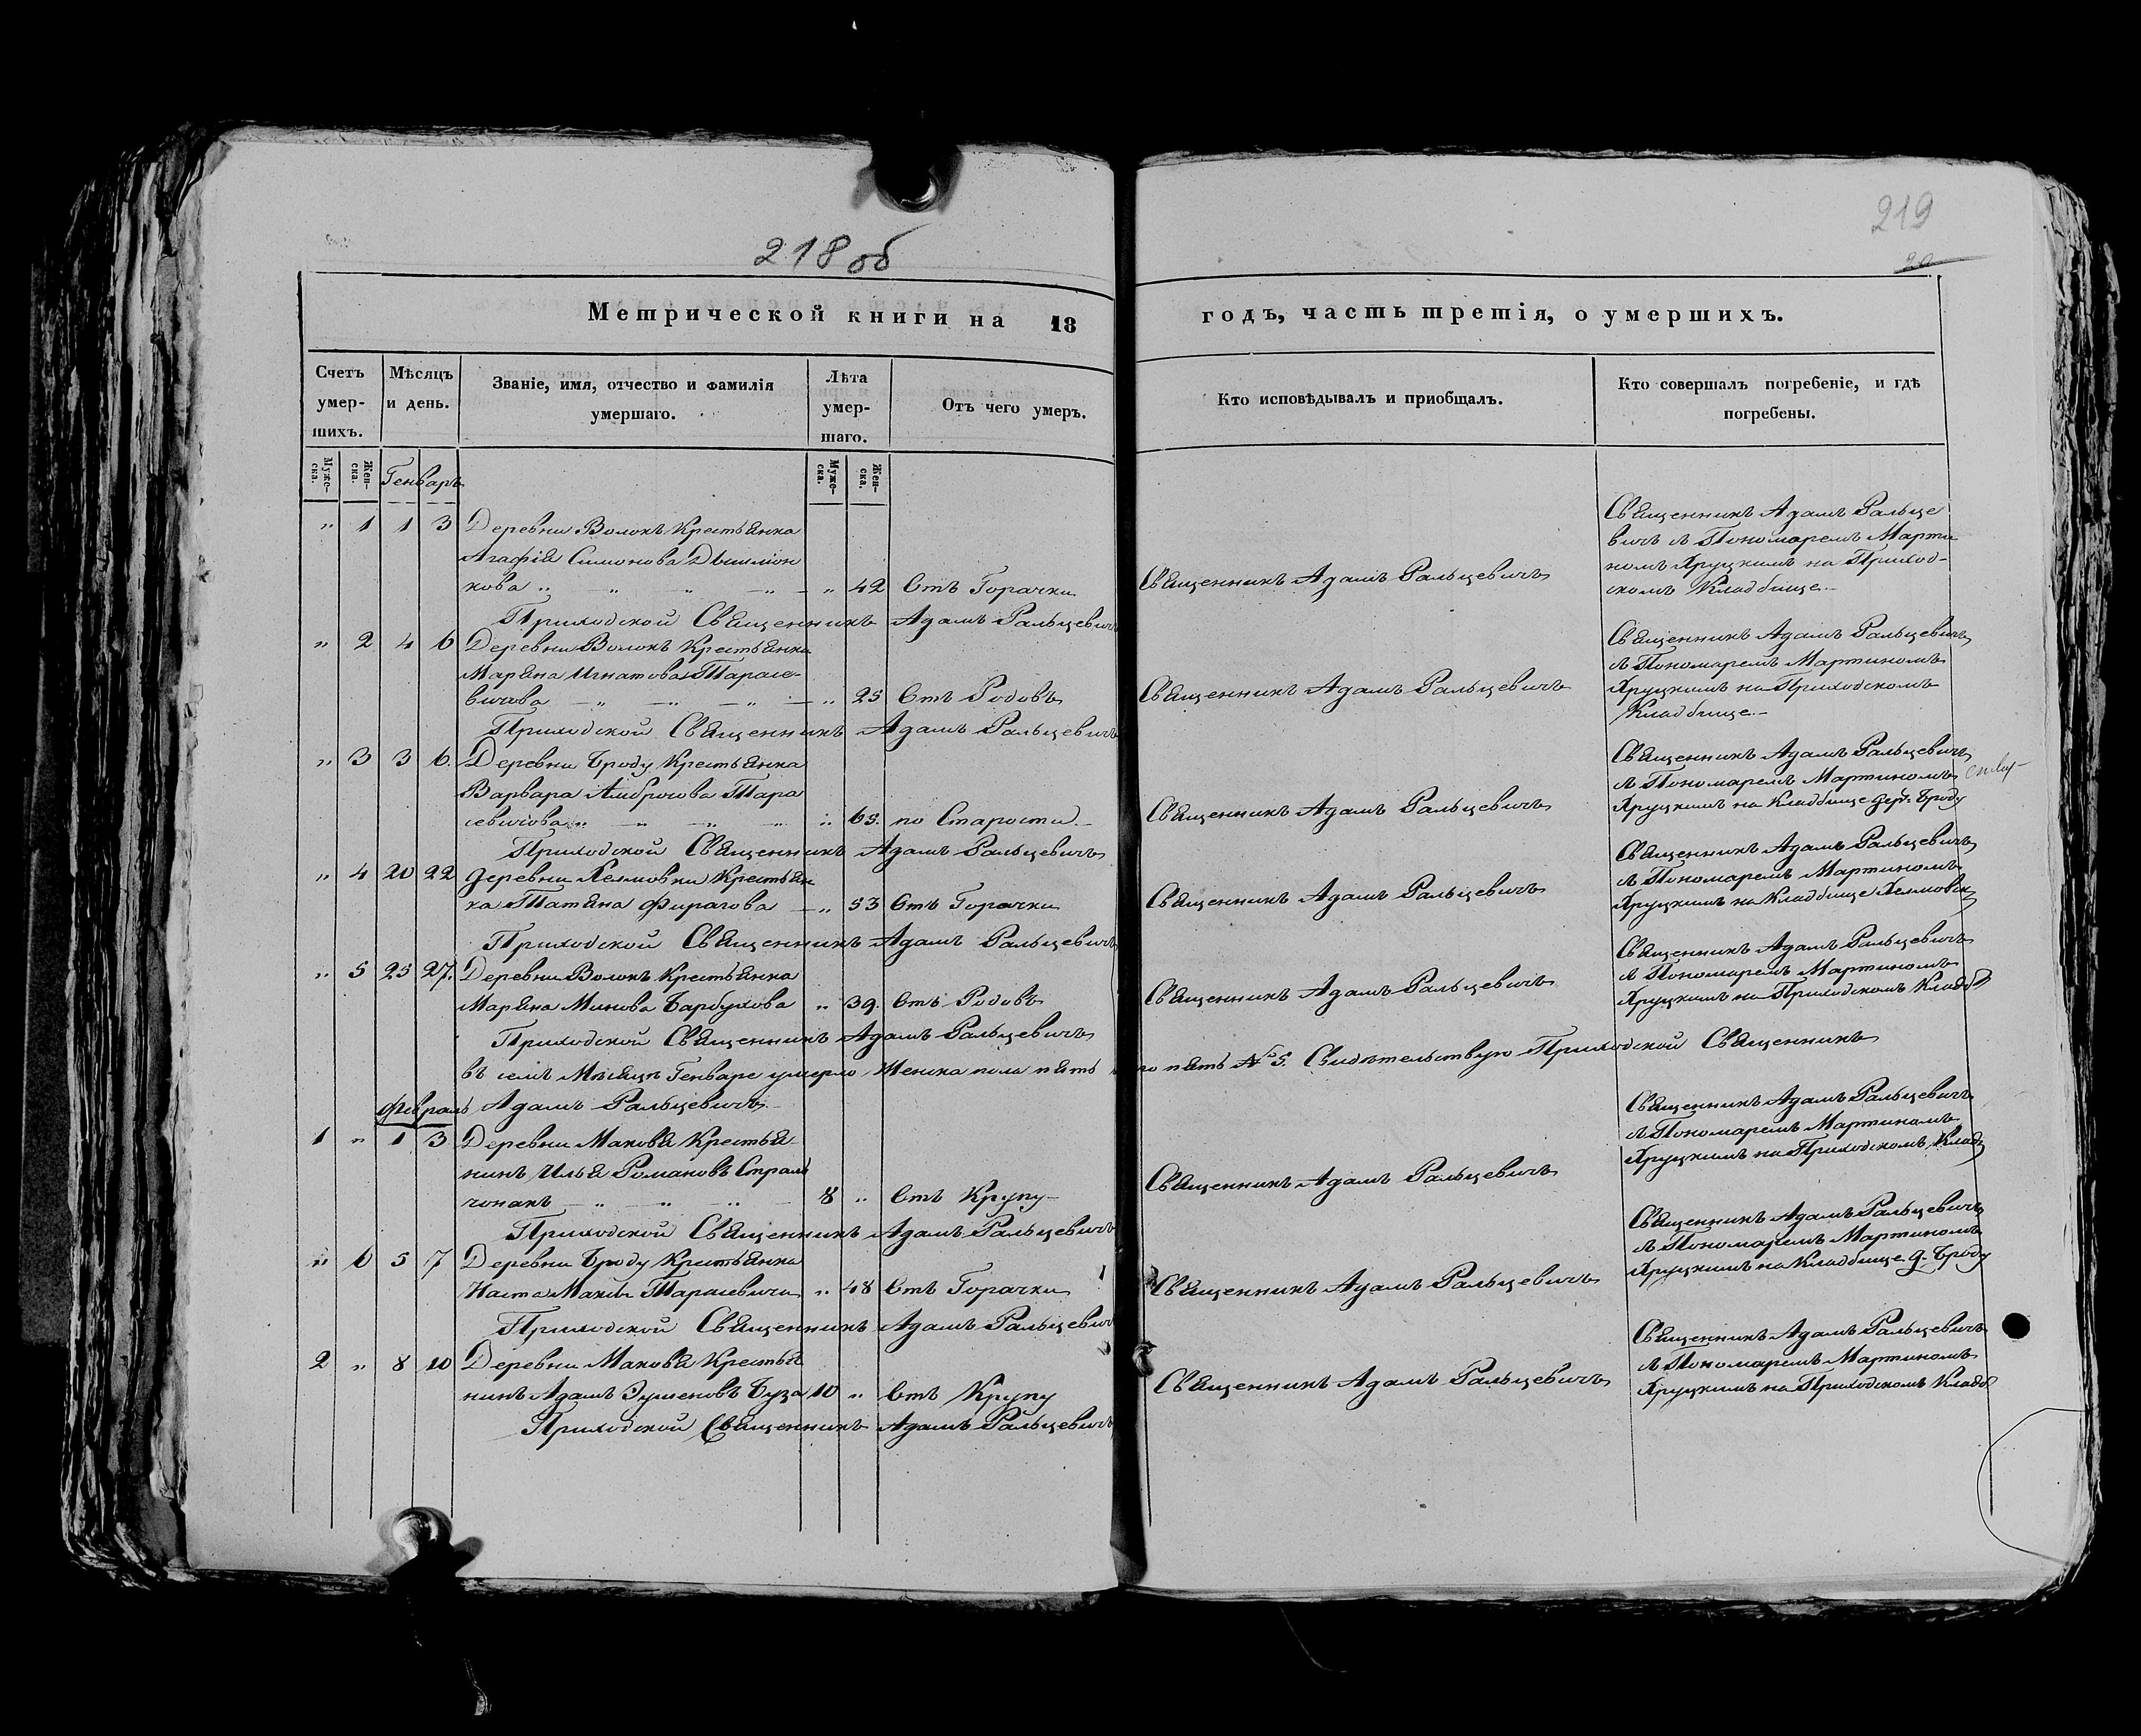 218 об
219
20
Метрической книги на 18
годъ, часть третія, о умершихъ.
Счетъ умер-шихъ.
Мѣсяцъ и день.
Званіе, имя, отчество и фамилія умершаго.
Лѣта умер-шаго.
Отъ чего умеръ.
Кто исповѣдывалъ и пріобщалъ.
Кто совершалъ погребеніе, и гдѣ погребены.
Муже-ска.
Жен-ска.
Генварь
Муже-ска.
Жен-ска.
„ 1 1 3 Деревни Волокъ Крестьянка
Агафія Симонова
кова „ „ „ „ „ 42 Отъ Горачки
Священникъ Адамъ Ральцевичъ
Священникъ Адамъ Ральце
вичъ съ Пономаремъ Марти
номъ Хруцкимъ на Приход-
скомъ Кладбище
Приходской Священникъ Адамъ Ральцевичъ
„ 2 4 6 Деревни Волокъ Крестьянка
Марѧна Игнатова Тарасе-
вичова „ „ „ „ 25 Отъ Родовъ
Священникъ Адамъ Ральцевичъ
Священникъ Адамъ Ральцевичъ
съ Пономаремъ Мартиномъ
Хруцкимъ на Приходскомъ
Кладбище
Приходской Священникъ Адамъ Ральцевичъ
„ 3 3 6. Деревни Броду Крестьянка
Варвара Амброгова Тара
севичова „ „ „ „ 65. по Старости
Священникъ Адамъ Ральцевичъ
Священникъ Адамъ Ральцевичъ
съ Пономаремъ Мартиномъ
Хруцкимъ на Кладбище дер. Броду
Приходской Священникъ Адамъ Ральцевичъ
„ 4 20 22 Деревни Хелмовки Крестьян
ка Татѧна Фирагова „ 53 Отъ Горачки
Священникъ Адамъ Ральцевичъ
Священникъ Адамъ Ральцевичъ
съ Пономаремъ Мартиномъ
Хруцкимъ на Кладбище Хелмовск
Приходской Священникъ Адамъ Ральцевичъ
„ 5 25 27. Деревни Волокъ Крестьянка
Марѧна Минова Барбухова „ 39. Отъ Родовъ
Священникъ Адамъ Ральцевичъ
Священникъ Адамъ Ральцевичъ
съ Пономаремъ Мартиномъ
Хруцкимъ на Приходскомъ Кладб
Приходской Священникъ Адамъ Ральцевичъ
въ семъ Мѣсяцѣ Генваре умерло Женска пола пять пять № 5. Свидѣтельствую Приходской Священникъ
Адамъ Ральцевичъ
Февраль
1 „ 1 3 Деревни Маковя Крестья
нинъ Илья Романовъ
чонакъ „ „ „ 8 „ Отъ Крупу
Священникъ Адамъ Ральцевичъ
Священникъ Адамъ Ральцевичъ
съ Пономаремъ Мартиномъ
Хруцкимъ на Приходскомъ Кладб
Приходской Священникъ Адамъ Ральцевичъ
„ 6 5 7 Деревни Броду Крестьянка
Наста Тарасевичи „ 48 Отъ Горачки
Священникъ Адамъ Ральцевичъ
Священникъ Адамъ Ральцевичъ
съ Пономаремъ Мартиномъ
Хруцкимъ на Кладбище д. Броду
Приходской Священникъ Адамъ Ральцевичъ
2 „ 8 10 Деревни Маковя Крестья
нинъ Адамъ Буза 10 „ Отъ Крупу
Священникъ Адамъ Ральцевичъ
Священникъ Адамъ Ральцевичъ
съ Пономаремъ Мартиномъ
Хруцкимъ на Приходскомъ Кладб
Приходской Священникъ Адамъ Ральцевичъ